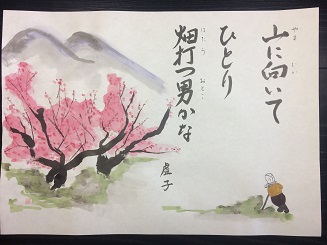 山に向いて
ひとり
畑打つ男かな
虚子